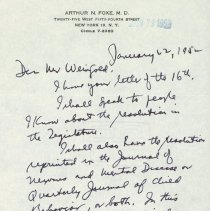 ARTHUR N. FOXE, M. D.
TWENTY-FIVE WEST FIFTY-FOURTH STREET
NEW YORK 19, N. Y.
CIRCLE 7-2380
January 22, 1952
Dear Mr Weinfold.
I have your letter of the 16th.
I shall speak to people
I know about the resolution in
the legislature.
I shall also have the resolution
reprinted in the Journal of
Nervous and Mental Disease or
Quarterly Journal of Child
Behavior, or both. In this